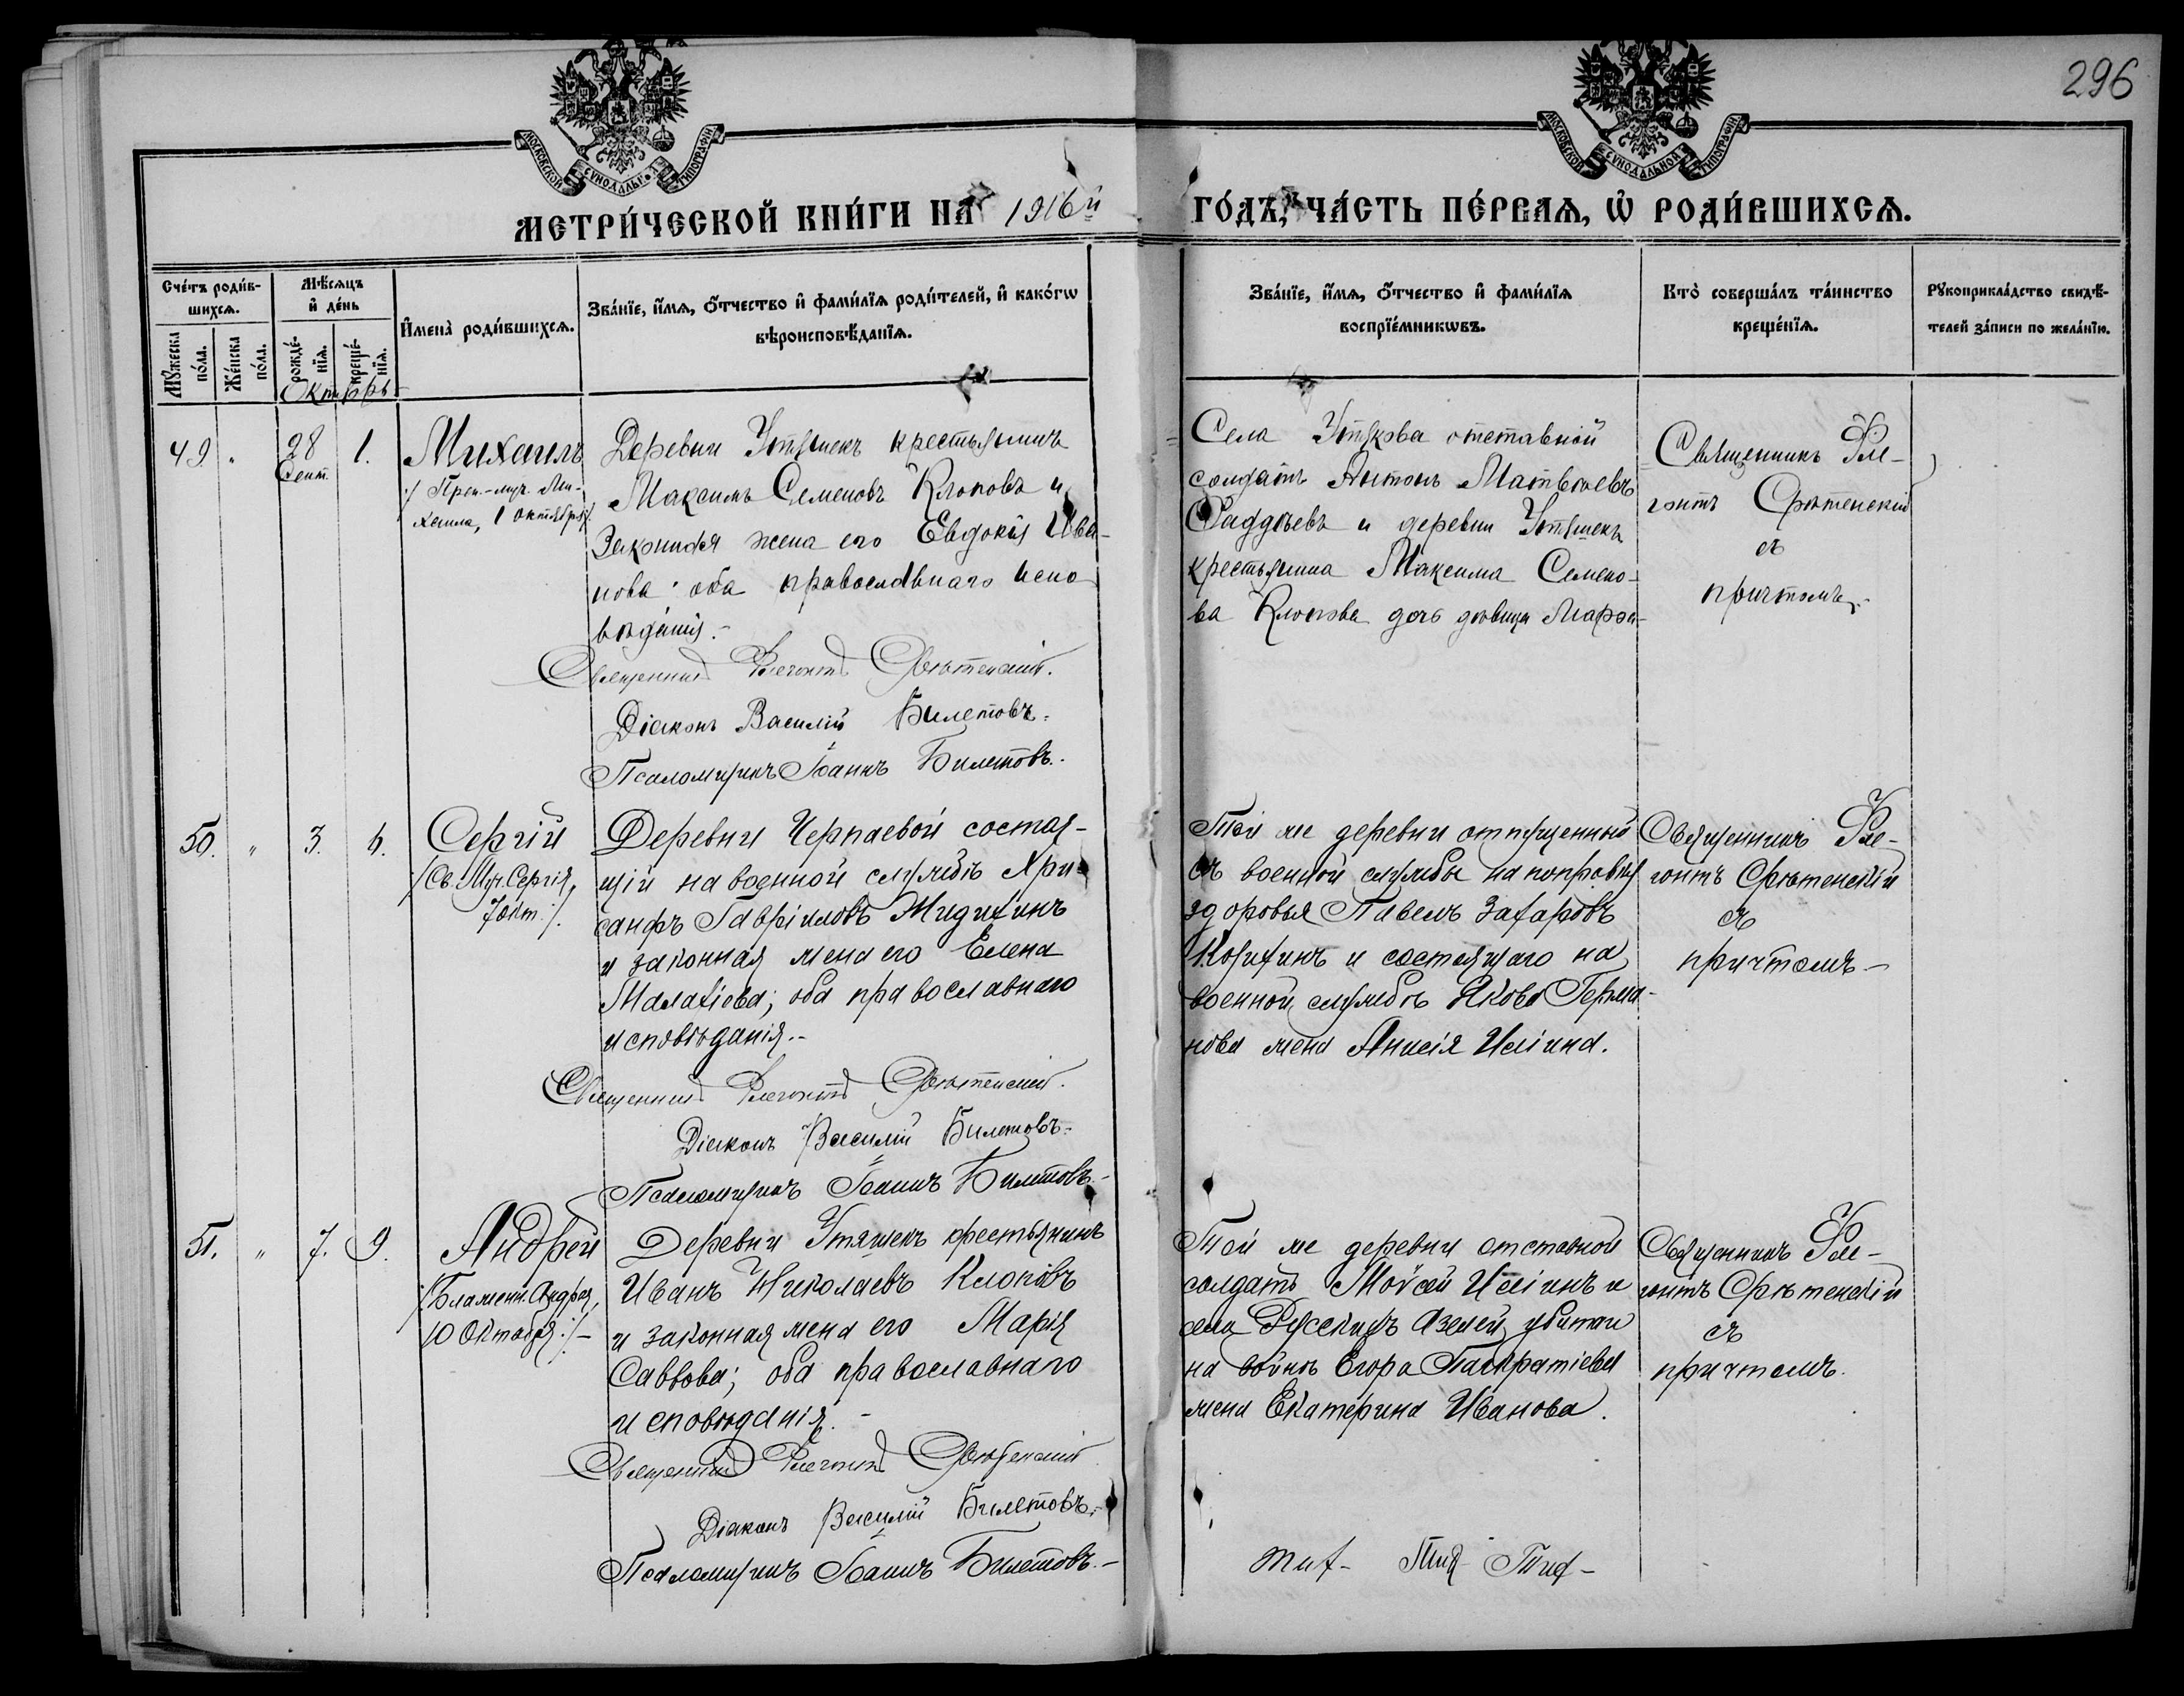 296
МОСКОВСКОЙ СУНОДАЛЬНОЙ ТИПОГРАФІИ
МОСКОВСКОЙ СУНОДАЛЬНОЙ ТИПОГРАФІИ
МЕТРИ́ЧЕСКОЙ КНИ́ГИ НА 1916й
ГО́ДЪ, ЧА́СТЬ ПЕ́РВАѦ, Ѡ҆ РОДИ́ВШИХСѦ.
Сче́тъ роди́в-
шихсѧ.
Мꙋ́жеска
по́ла.
Же́нска
по́ла.
Мѣ́сѧцъ
и҆ де́нь
рожде́-
нїѧ.
креще́-
нїѧ.
И҆мена̀ роди́вшихсѧ.
Зва́нїе, и҆́мѧ, ѻ҆́тчество и҆ фами́лїѧ роди́телей, и҆ како́гѡ
вѣроисповѣ́данїѧ.
Зва́нїе, и҆́мѧ, ѻ҆́тчество и҆ фами́лїѧ
воспрїе́мникѡвъ.
Кто̀ соверша́лъ та́инство
креще́нїѧ.
Рꙋкоприкла́дство свидѣ́-
телей за́писи по жела́нїю.
Октябрь
49. " 28 1.
Сент.
Михаилъ
/ Преп.-муч. Ми-
хаила, 1 октября /.
Деревни Утяшекъ крестьянинъ
Максимъ Семеновъ Клоповъ и
Законная жена его Евдокія Ива-
нова; оба православнаго испо
вѣданія.-
Священникъ Флегонтъ Срѣтенскій.
Діаконъ Василій Билетовъ.
Псаломщикъ Іоаннъ Билетовъ.
Села Утякова отставной
солдатъ Антонъ Матвѣевъ
Фаддѣевъ и деревни Утяшекъ
крестьянина Максима Семено-
ва Клопова дочь дѣвица Марѳа-
Священникъ Фле-
гонтъ Срѣтенскій
съ
причтомъ.-
50. " 3. 6.
Сергій
/Св. Муч. Сергія,
7 окт./.
Деревни Черпаевой состоя-
щій на военной службѣ Хри-
санфъ Гавріиловъ Жидихинъ
и законная жена его Елена
Малахіева; оба православнаго
исповѣданія.-
Священникъ Флегонтъ Срѣтенскій.
Діаконъ Василій Билетовъ.-
Псаломщикъ Іоаннъ Билетовъ.-
Той же деревни отпущенный
съ военной службы на поправку
здоровья Павелъ Захаровъ
и состоящаго на
военной службѣ Якова Герма-
нова жена Анисія Иліина.
Священникъ Фле-
гонтъ Срѣтенскій
съ
причтомъ-
51. " 7. 9.
Андрей
/Блаженн. Андрея,
10 Октября:/-
Деревни Утяшекъ крестьянинъ
Иванъ Николаевъ Клоповъ
и законная жена его Марія
Саввова; оба православнаго
исповѣданія.-
Священникъ Флегонтъ Срѣтенскій
Діаконъ Василій Билетовъ.-
Псаломщикъ Іоаннъ Билетовъ.-
Той же деревни отставной
солдатъ Моѵсей Иліинъ и
села Русскихъ Азелей убитаго
на войнѣ Егора Панкратіева
жена Екатерина Иванова.
Священникъ Фле-
гонтъ Срѣтенскій
съ
причтомъ.